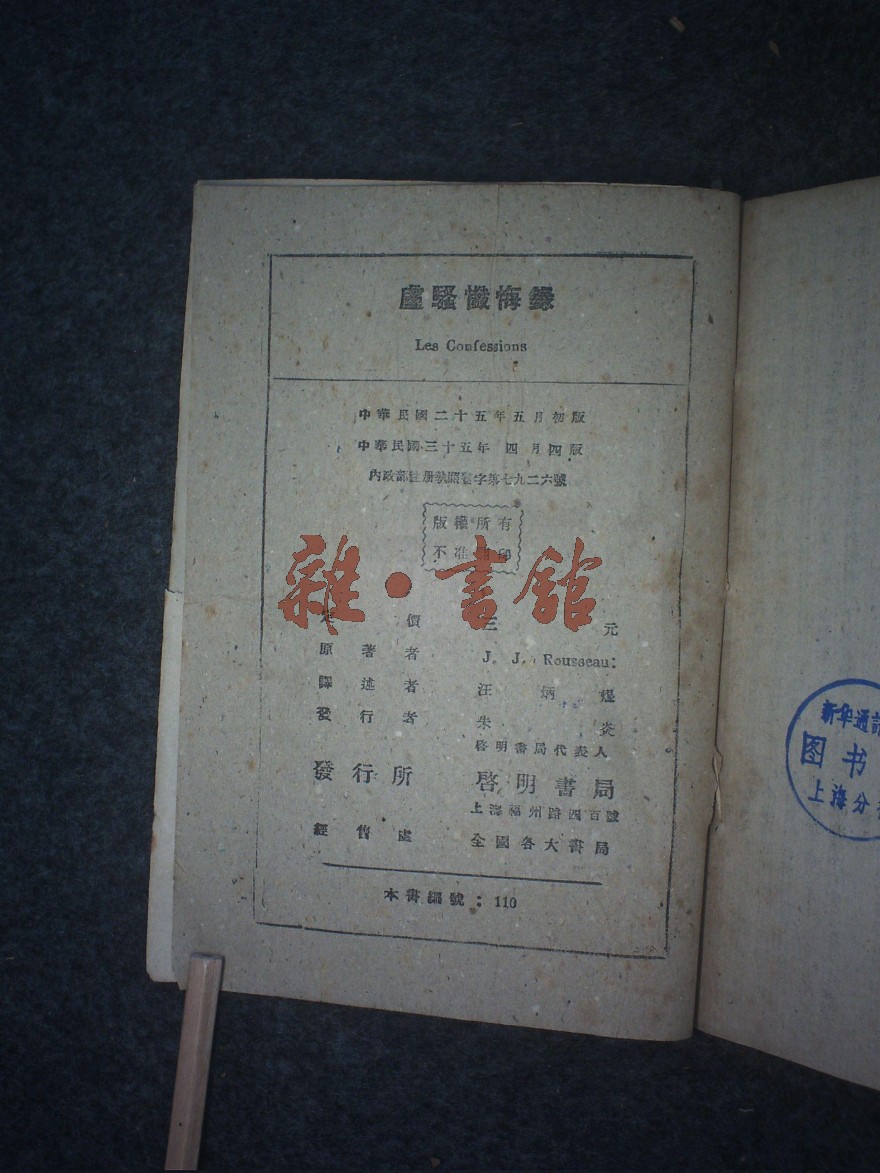 盧騷懺悔錄
Les Confessions
中華民國二十五年五月初版
中華民國三十五年 四月四版
內政部註册執照警字第七九二六號
版權所有
不准翻印
雜·書館
定價 三元
原著者 J. J. Rousseau:
譯述者 汪炳焜
發行者 朱炎
啓明書局代表人
發行所 啓明書局
上海福州路四百號
經售處 全國各大書局
本書編號：110
新华通
图书
上海分